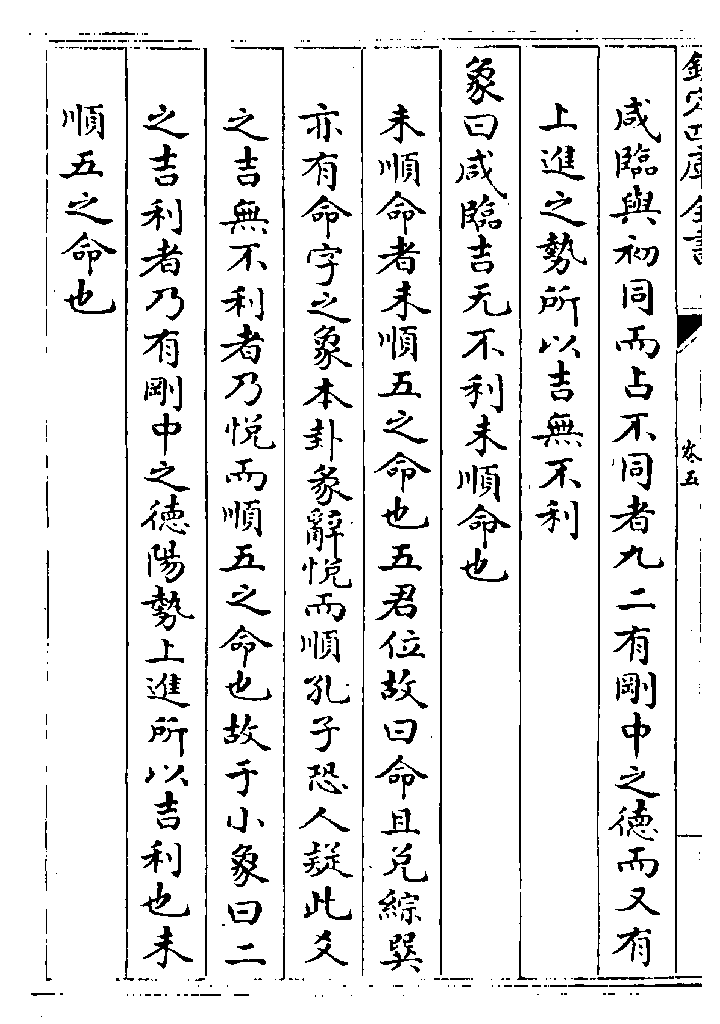 欽定四庫全書
卷五
咸臨與初同而占不同者九二有剛中之德而又有
上進之勢所以吉無不利
象曰咸臨吉无不利未順命也
未順命者未順五之命也五君位故曰命且兑綜巽
亦有命字之象本卦彖辭悦而順孔子恐人疑此爻
之吉無不利者乃悦而順五之命也故于小象曰二
之吉利者乃有剛中之德陽勢上進所以吉利也未
順五之命也